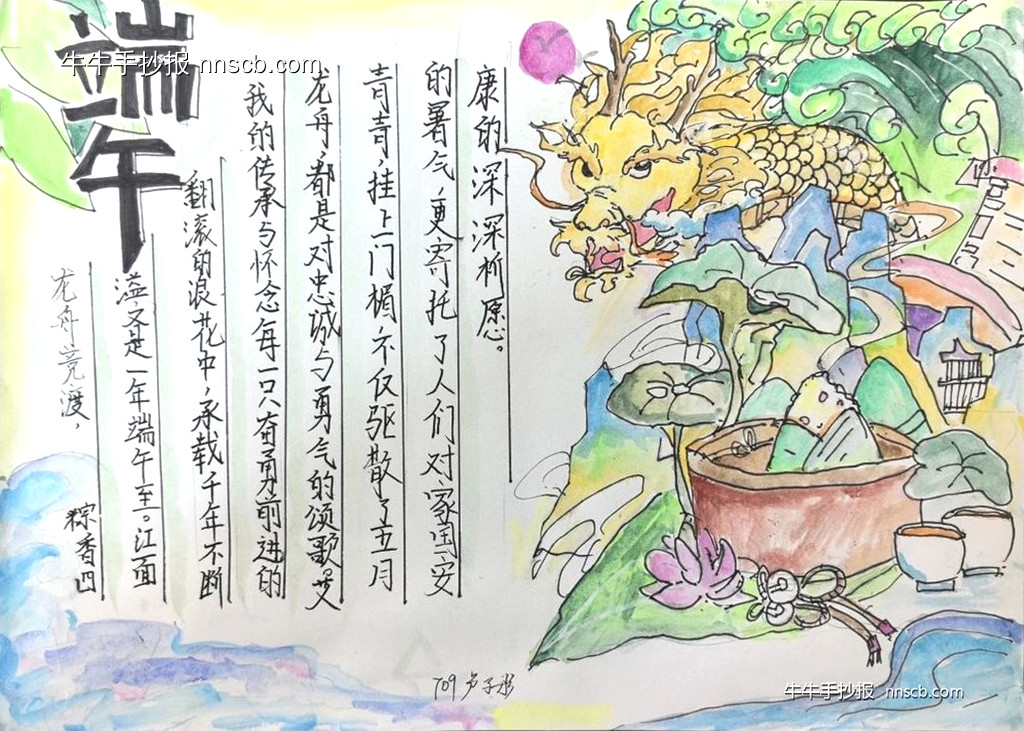 端午
牛牛手抄报 nnscb.com
龙舟竞渡，粽香四
溢又是一年端午至。江面
翻滚的浪花中，承载千年不断
我的传承与怀念每一只奋勇前进的
龙舟都是对忠诚与勇气的颂歌。艾
青青，挂上门楣，不仅驱散了五月
的暑气，更寄托了人们对家国安
康的深深祈愿。
709 卢子
牛牛手抄报 nnscb.com